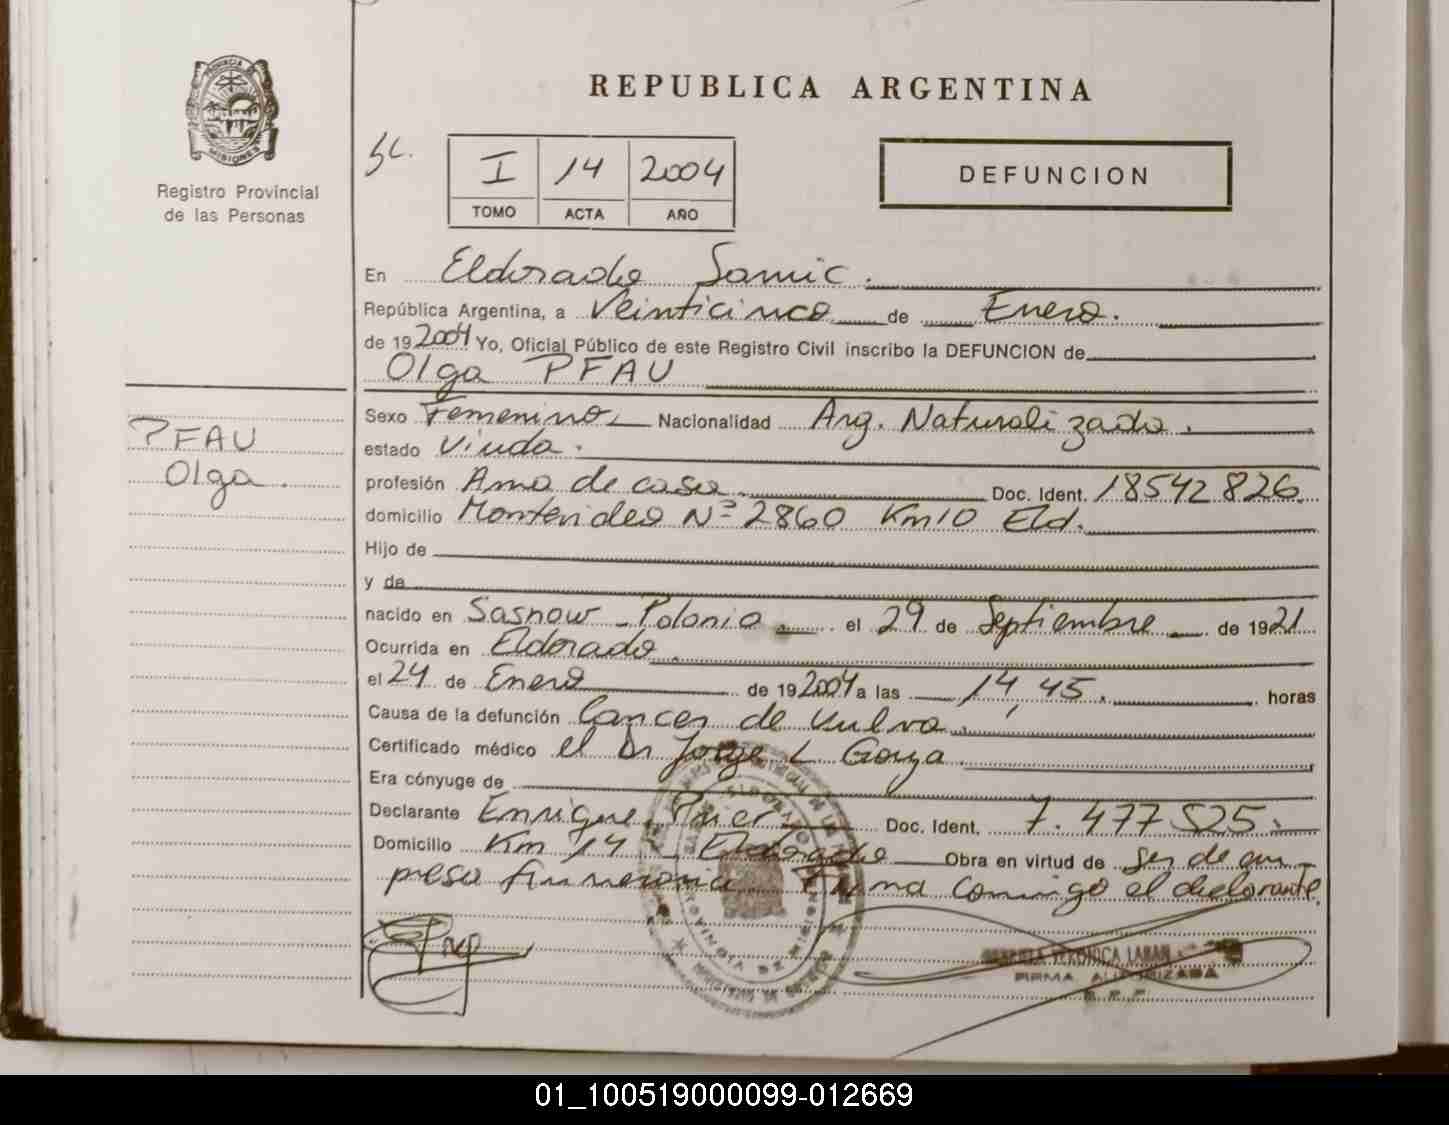 PROVINCIA DE
MISIONES
Registro Provincial
de las Personas
REPUBLICA ARGENTINA
I 14 2004
TOMO ACTA AÑO
DEFUNCION
En Eldorado Samic.
República Argentina, a Veinticinco de Enero.
de 19 2004 Yo, Oficial Público de este Registro Civil inscribo la DEFUNCION de
Olga PFAU
PFAU
Olga.
Sexo Femenino Nacionalidad Arg. Naturalizada.
estado Viuda.
profesión Ama de casa Doc. Ident. 18542826.
domicilio Montevideo Nº 2860 Km10 Eld.
Hijo de
y de
nacido en Sasnow - Polonia el 29 de Septiembre de 1921
Ocurrida en Eldorado.
el 24 de Enero de 19 2004 a las 14,45. horas
Causa de la defunción Cancer de vulva.
Certificado médico el Dr Jorge L
Era cónyuge de
Declarante Enrique Doc. Ident. 7.477525.
Domicilio Km 14 Eldorado Obra en virtud de Ser de em-
presa funeraria. Firma conmigo el declarante.
VERONICA
FIRMA AUTORIZADA
R.P.P.
01_100519000099-012669